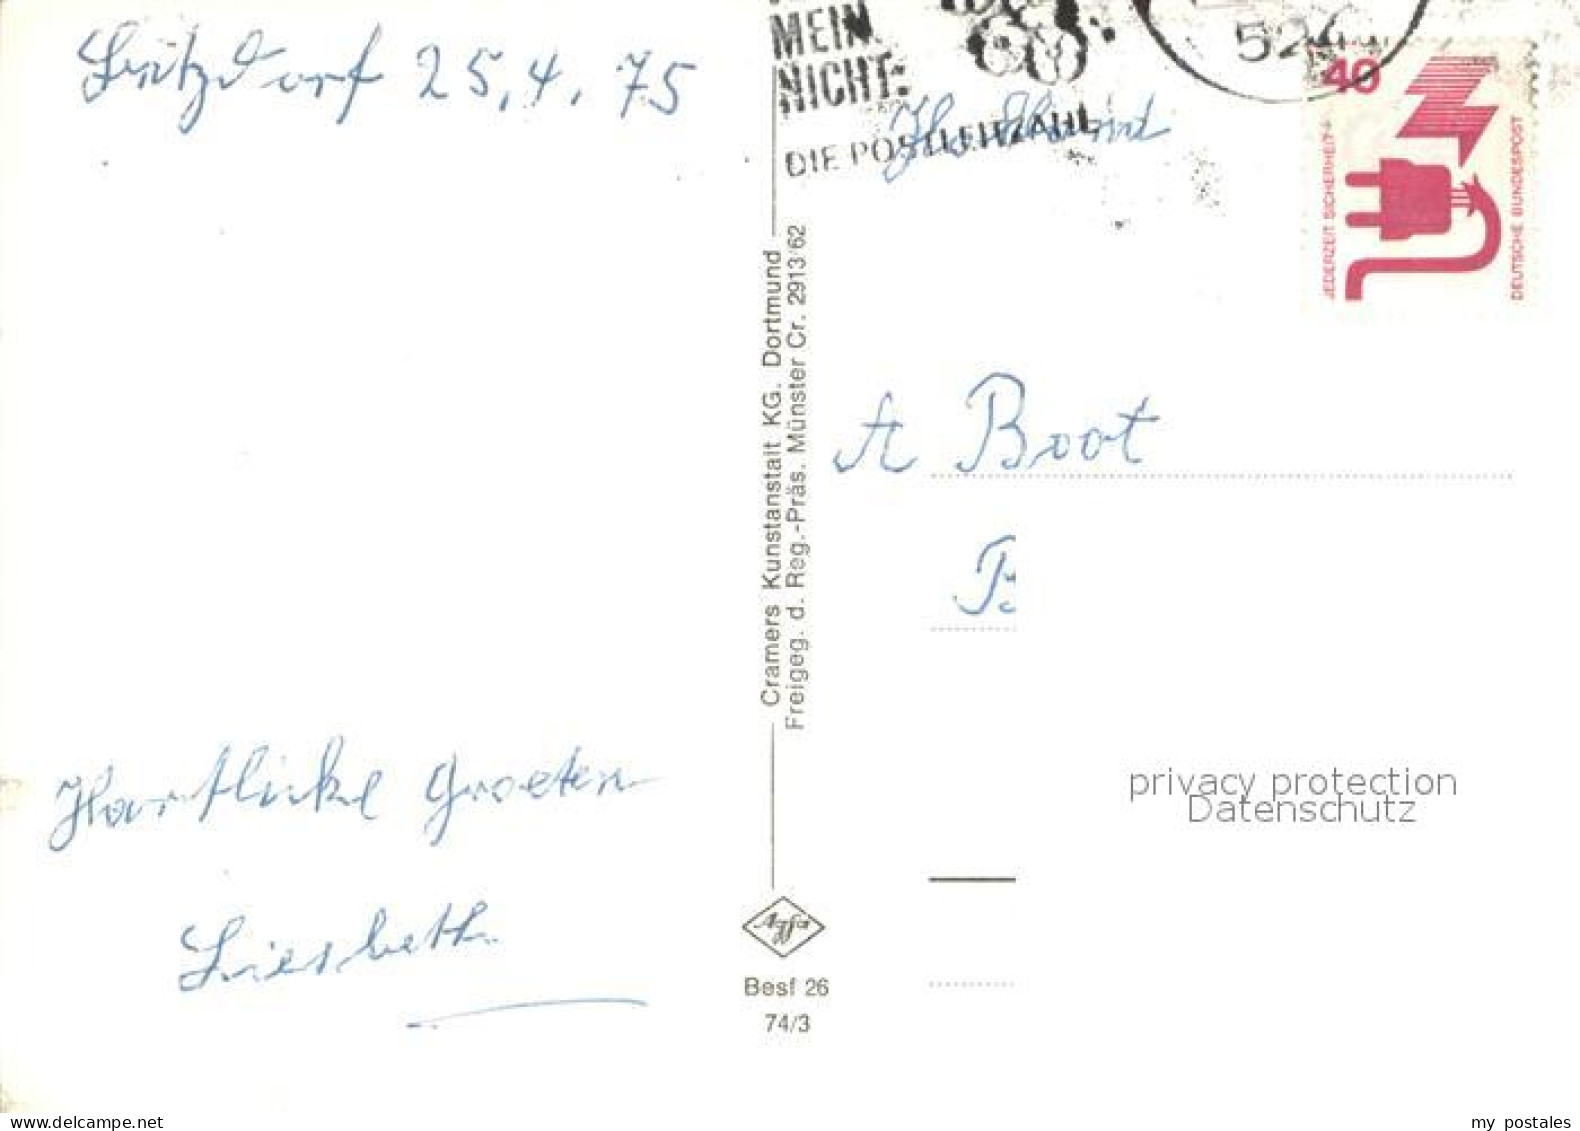 Betzdorf 25.4.75
MEIN
NICHT:
DIE POSTLEITZAHL
Holland
52
40
JEDERZEIT SICHERHEIT
DEUTSCHE BUNDESPOST
Cramers Kunstanstalt KG. Dortmund
Freigeg. d. Reg.-Präs. Münster Cr. 2913/62
A Boot
B
Hartlicke Groeten
Liesbeth
privacy protection
Datenschutz
Agfa
Besf 26
74/3
my postales
www.delcampe.net